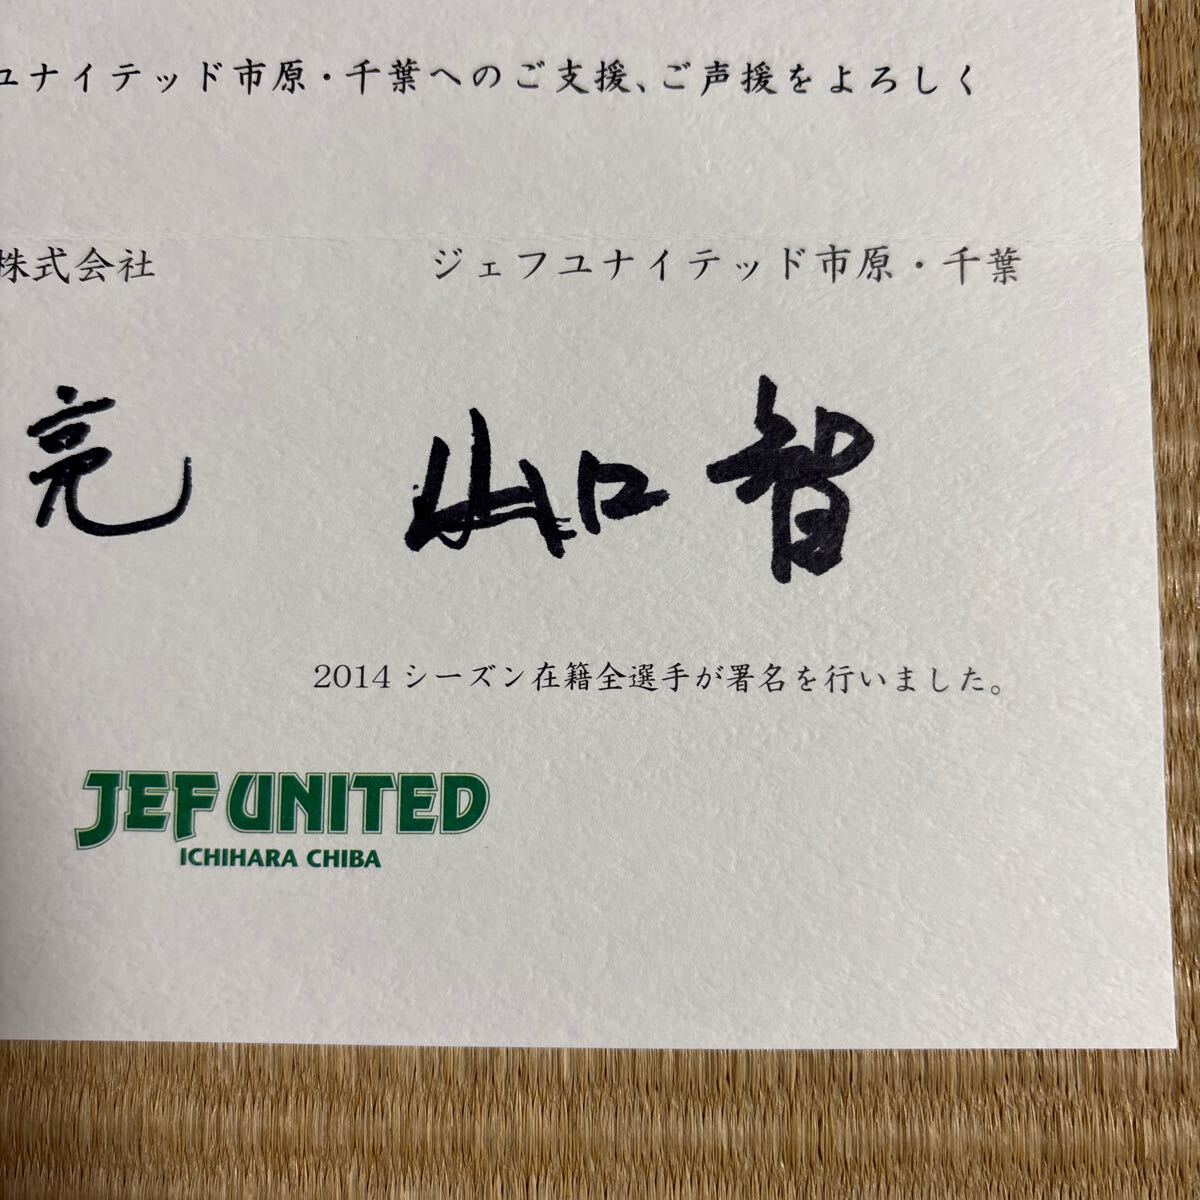 ユナイテッド市原・千葉へのご支援、ご声援をよろしく
株式会社
ジェフユナイテッド市原・千葉
亮
山口智
2014シーズン在籍全選手が署名を行いました。
JEF UNITED
ICHIHARA CHIBA